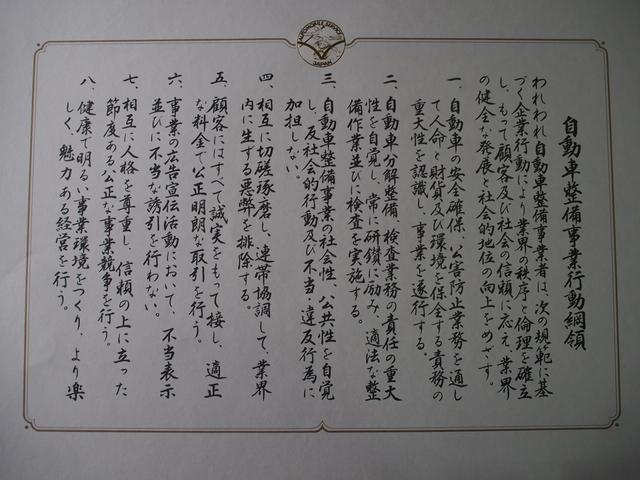 AUTOMOBILE SERVICE
JAPAN
自動車整備事業行動綱領
われわれ自動車整備事業者は、次の規範に基
づく企業行動により、業界の秩序と倫理を確立
し、もって顧客及び社会の信頼に応え、業界
の健全な発展と社会的地位の向上をめざす。
一、自動車の安全確保、公害防止業務を通し
て人命と財貨及び環境を保全する責務の
重大性を認識し、事業を遂行する。
二、自動車分解整備、検査業務の責任の重大
性を自覚し、常に研鑽に励み、適法な整
備作業並びに検査を実施する。
三、自動車整備事業の社会性、公共性を自覚
し、反社会的行動及び不当・違反行為に
加担しない。
四、相互に切磋琢磨し、連帯協調して、業界
内に生ずる悪弊を排除する。
五、顧客にはすべて誠実をもって接し、適正
な料金で公正明朗な取引を行う。
六、事業の広告宣伝活動において、不当表示
並びに不当な誘引を行わない。
七、相互に人格を尊重し、信頼の上に立った
節度ある公正な事業競争を行う。
八、健康で明るい事業環境をつくり、より楽
しく、魅力ある経営を行う。